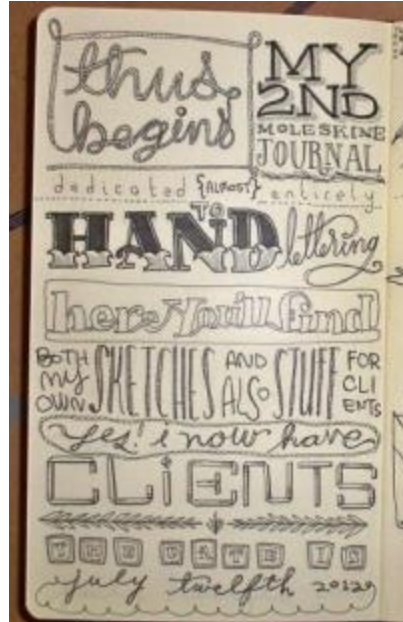 thus
begins
MY
2ND
MOLESKINE
JOURNAL
dedicated {ALMOST} entirely
TO
HAND lettering
here you'll find
BOTH MY OWN SKETCHES AND ALSO STUFF FOR CLIENTS
yes! i now have
CLIENTS
THE DATE IS
july twelfth 2012